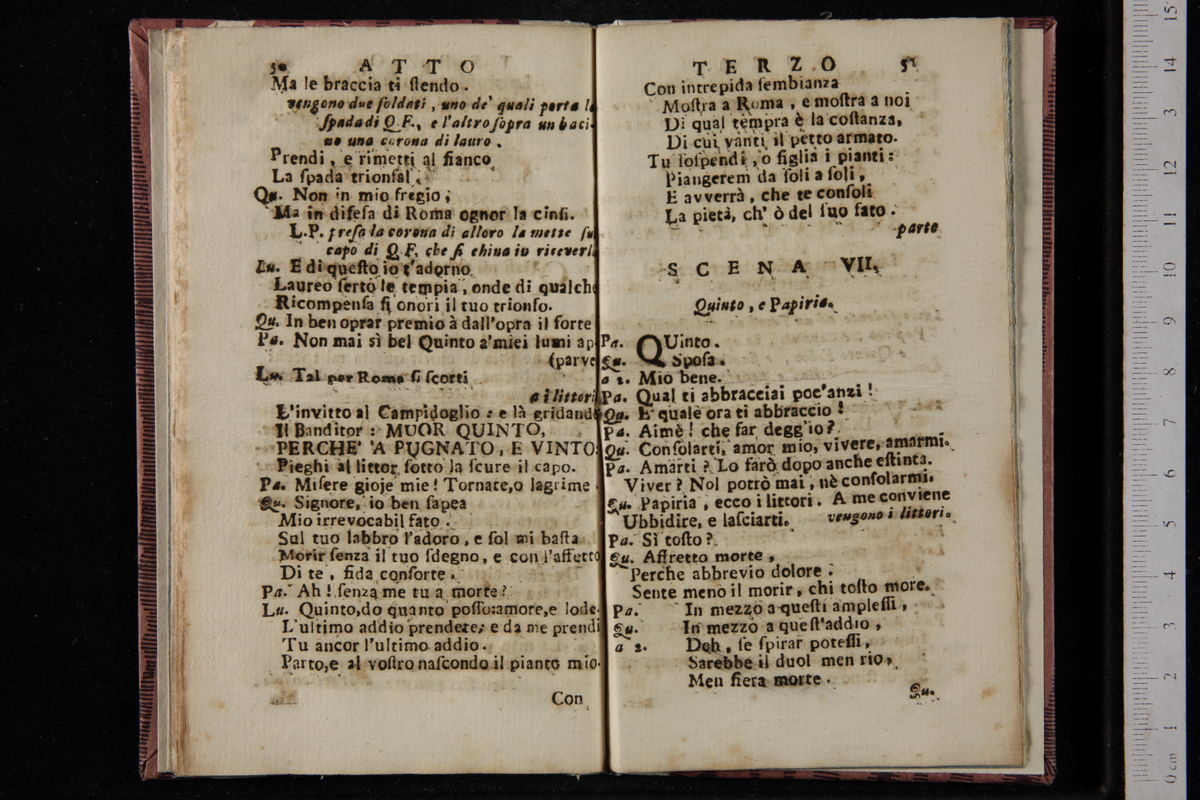 ATTO
Ma le braccia ti ſtendo.
vengono due ſoldati, uno de' quali porta l
ſpada di Q.F., e l'altro ſopra un baci-
no una corona di lauro.
Prendi, e rimetti al fianco
La ſpada trionfal.
Qu. Non in mio fregio;
Ma in difeſa di Roma ognor la cinſi.
L.P. preſa la corona di alloro la mette ſu
capo di Q.F. che ſi china in riceverl
Lu. E di queſto io t'adorno
Laureo ſerto le tempia, onde di qualche
Ricompenſa ſi onori il tuo trionfo.
Qu. In ben oprar premio à dall'opra il forte
Pa. Non mai sì bel Quinto a'miei lumi ap-
(parve
Lu. Tal per Roma ſi ſcorti
a i littori
L'invitto al Campidoglio: e là gridando
Il Banditor: MUOR QUINTO,
PERCHE' 'A PUGNATO, E VINTO:
Pieghi al littor ſotto la ſcure il capo.
Pa. Miſere gioje mie! Tornate,o lagrime.
Qu. Signore, io ben ſapea
Mio irrevocabil fato.
Sul tuo labbro l'adoro, e ſol mi baſta
Morir ſenza il tuo ſdegno, e con l'affetto
Di te, fida conſorte.
Pa. Ah! ſenza me tu a morte?
Lu. Quinto,do quanto poſſo:amore,e lode.
L'ultimo addio prendete; e da me prendi
Tu ancor l'ultimo addio.
Parto,e al voſtro naſcondo il pianto mio.
Con
TERZO 51
Con intrepida ſembianza
Moſtra a Roma, e moſtra a noi
Di qual tempra è la coſtanza,
Di cui vanti il petto armato.
Tu ſoſpendi, o figlia i pianti:
Piangerem da ſoli a ſoli,
E avverrà, che te conſoli
La pietà, ch' ò del ſuo fato.
parte
SCENA VII.
Quinto, e Papiria.
Pa. QUinto.
Qu. Spoſa.
a 2. Mio bene.
Pa. Qual ti abbracciai poc'anzi!
Qu. E quale ora ti abbraccio!
Pa. Aimè! che far degg'io?
Qu. Conſolarti, amor mio, vivere, amarmi.
Pa. Amarti? Lo farò dopo anche eſtinta.
Viver? Nol potrò mai, nè conſolarmi.
Qu. Papiria, ecco i littori. A me conviene
Ubbidire, e laſciarti. vengono i littori.
Pa. Sì toſto?
Qu. Affretto morte,
Perche abbrevio dolore.
Sente meno il morir, chi toſto more.
Pa. In mezzo a queſti ampleſſi,
Qu. In mezzo a queſt'addio,
a 2. Deh, ſe ſpirar poteſſi,
Sarebbe il duol men rio,
Men fiera morte.
Qu.